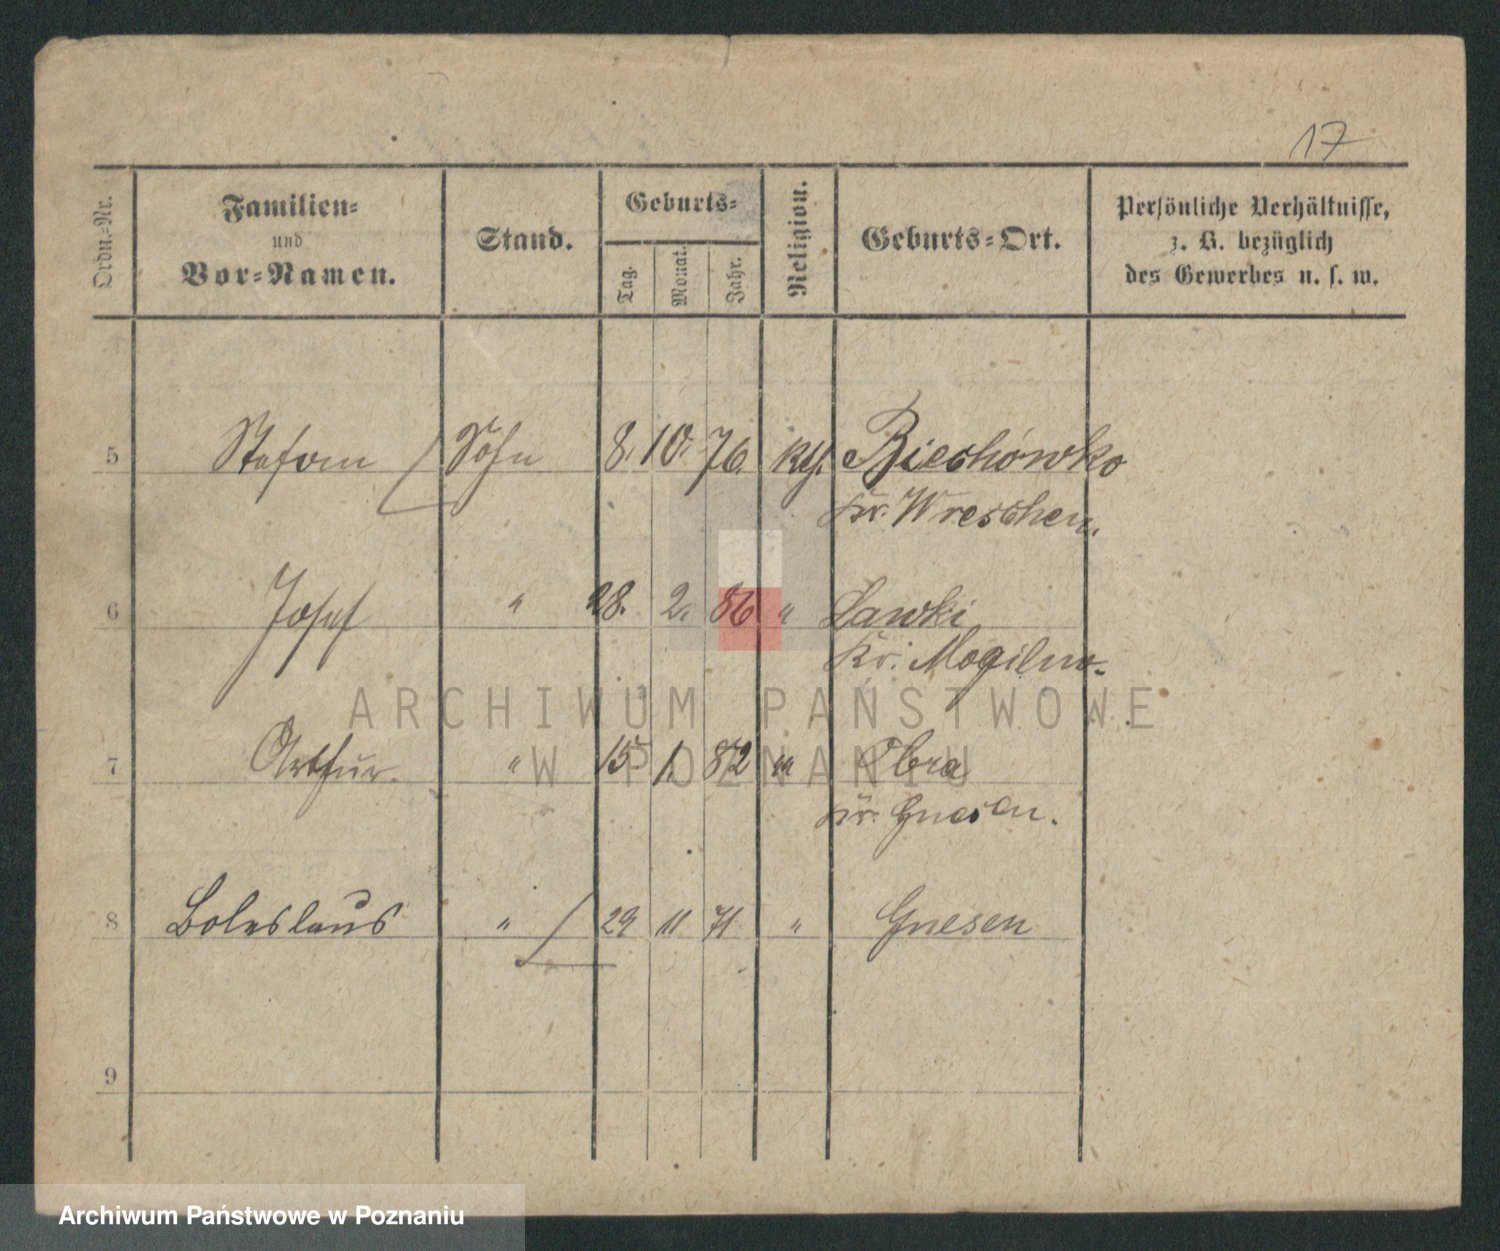 17
Ordn.-Nr.
Familien-
und
Vor-Namen.
Stand.
Geburts-
Tag.
Monat.
Jahr.
Religion.
Geburts-Ort.
Persönliche Verhältnisse,
z. B. bezüglich
des Gewerbes u. s. w.
5 Stefan Sohn 8. 10. 76. kth. Biechówko
Kr. Wreschen.
6 Josef " 28. 2. 86 " Lawki
Kr. Mogilno.
ARCHIWUM PAŃSTWOWE
W POZNANIU
7 Arthur. " 15 1. 82 " Obra
Kr. Gnesen.
8 Boleslaus " 29 11 71 " Gnesen
9
Archiwum Państwowe w Poznaniu